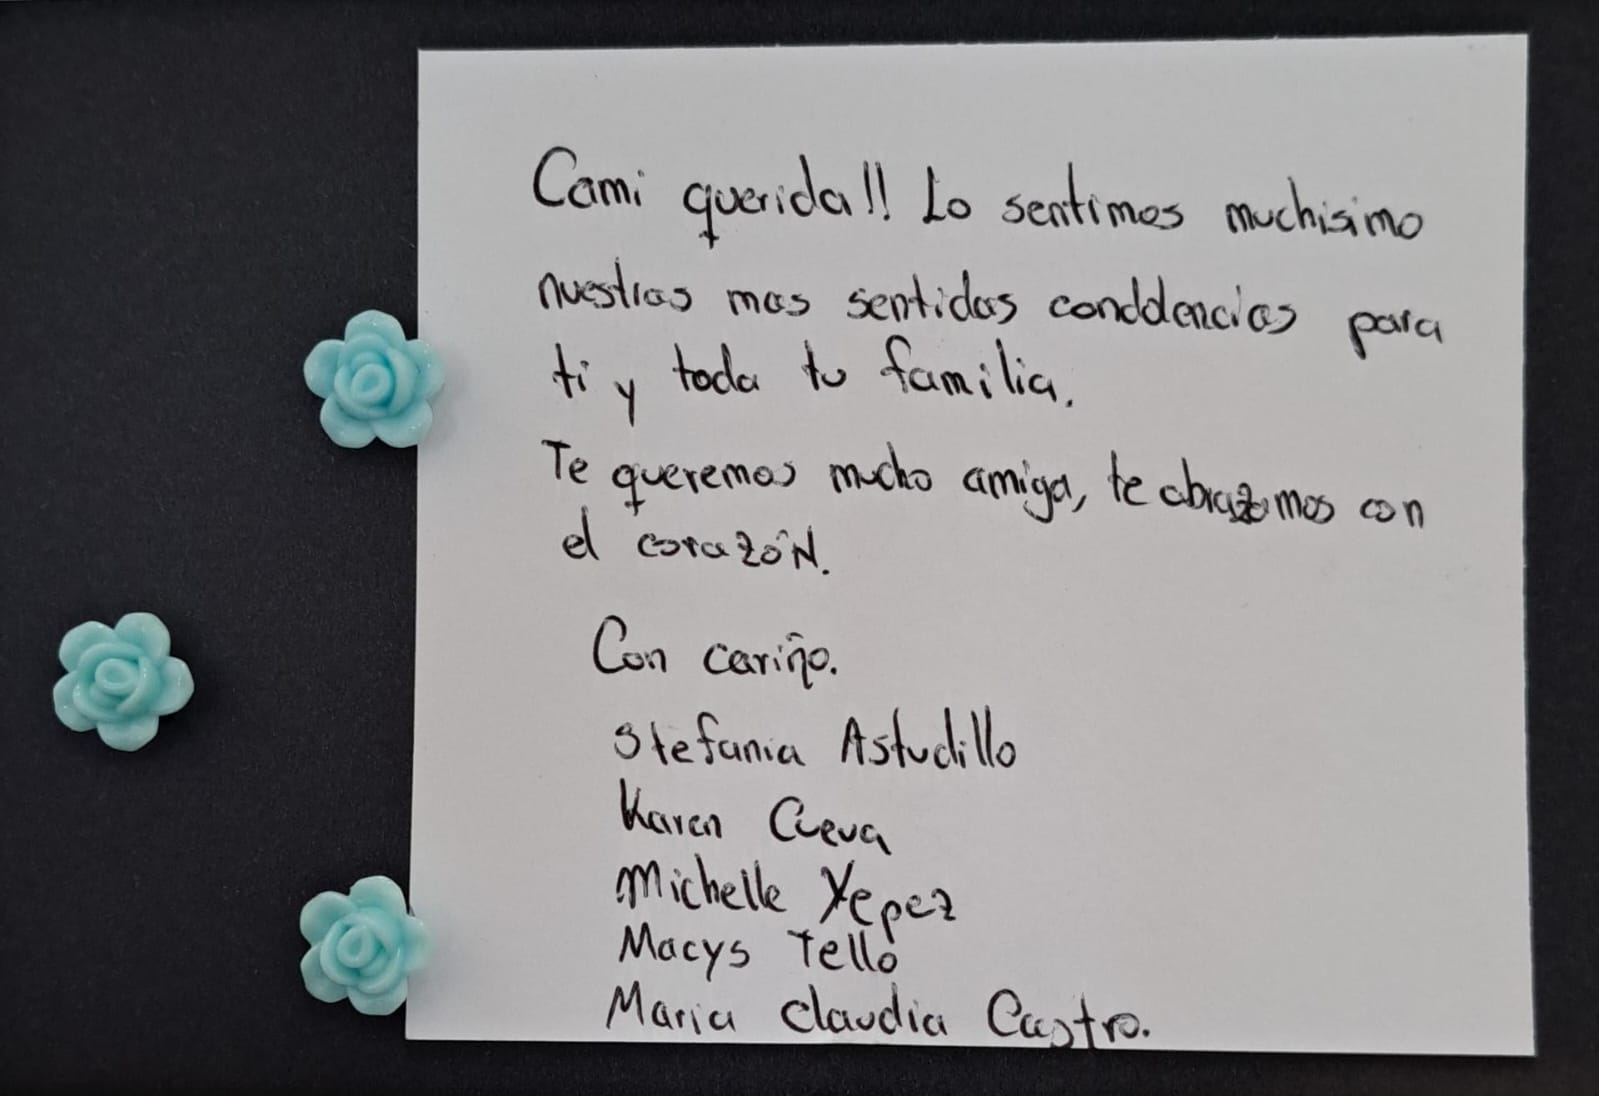 Cami querida!! Lo sentimos muchisimo
nuestras mas sentidas condolencias para
ti y toda tu familia.
Te queremos mucho amiga, te abrazamos con
el corazón.
Con cariño.
Stefania Astudillo
Karen Cueva
Michelle Yepez
Macys Tello
Maria Claudia Castro.